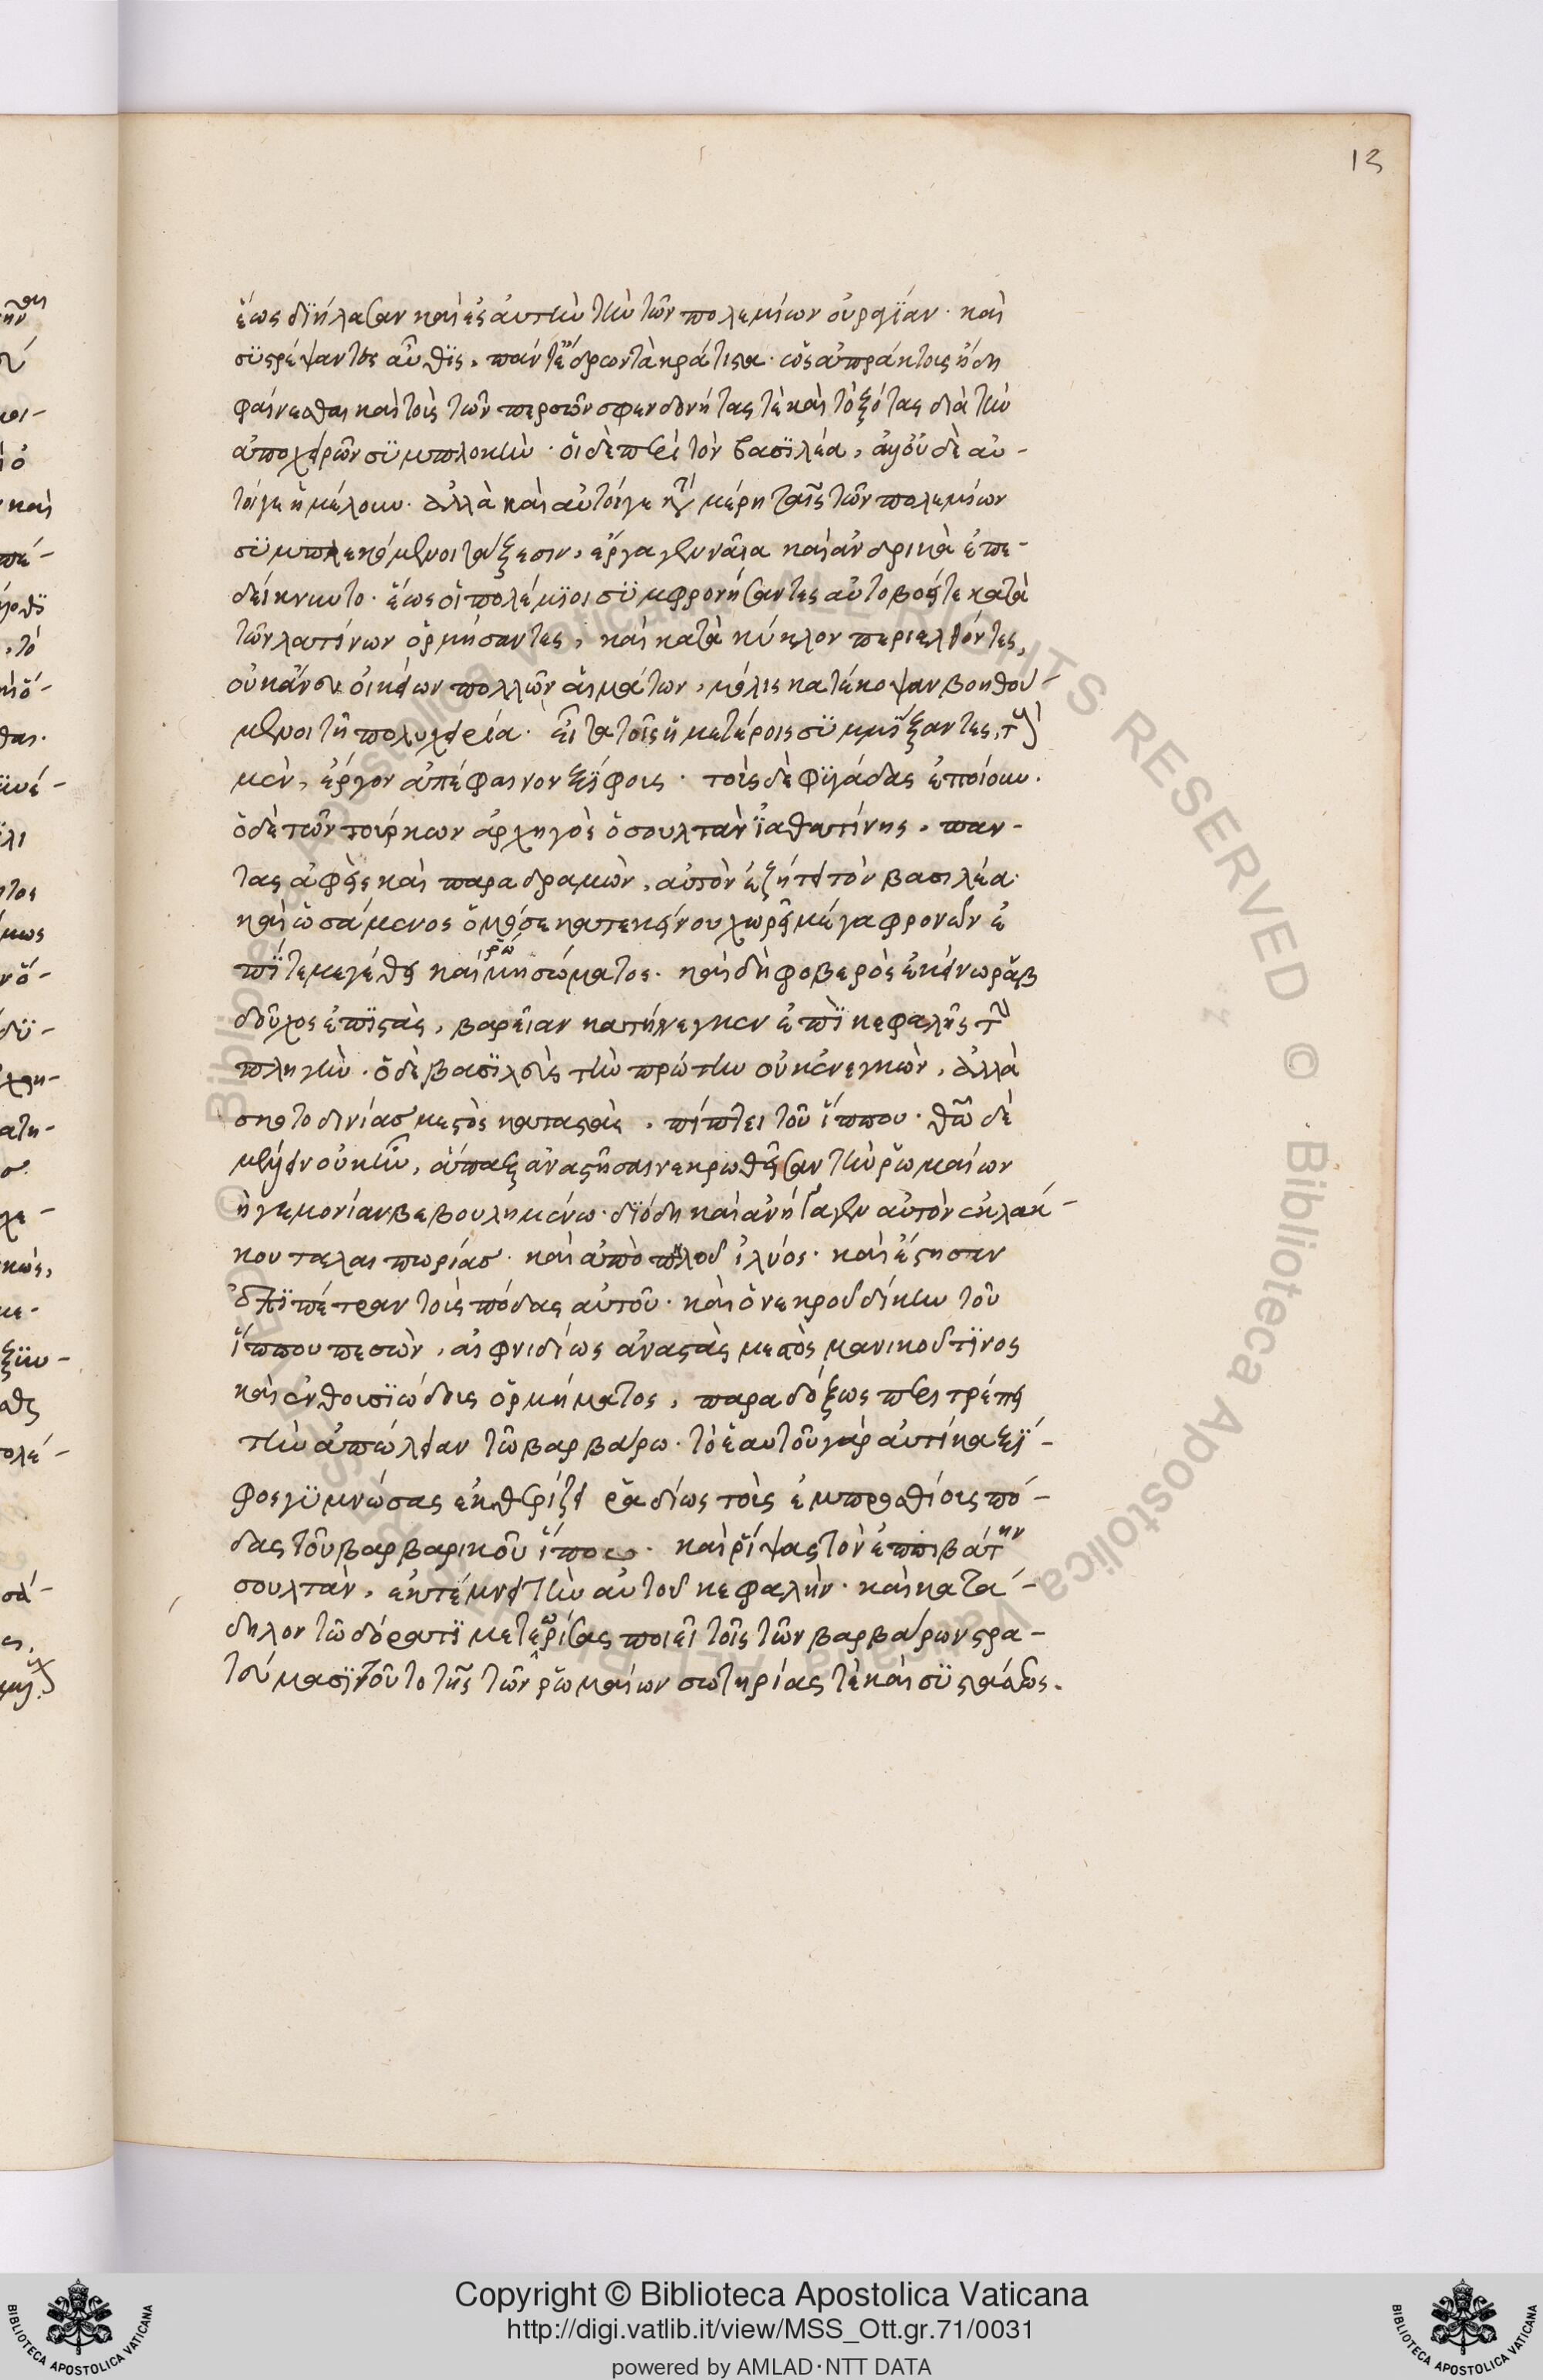 13
ἕως διήλασαν καὶ ἐς αὐτὴν τὴν τῶν πολεμίων οὐραγίαν · καὶ
συστρέψαντες αὖθις, πάντες ἔδρων τὰ κράτιστα · ὡς ἀπράκτους ἤδη
φαίνεσθαι καὶ τοὺς τῶν περσῶν σφενδονήτας τὲ καὶ τοξότας διὰ τὴν
ἀπὸ χειρῶν συμπλοκὴν · οἱ δὲ περὶ τὸν βασιλέα, οὐδὲ αὐ-
τοίγε ἠμέλουν · ἀλλὰ καὶ αὐτοίγε μέρη ταῖς τῶν πολεμίων
συμπλεκόμενοι τάξεσιν, ἔργα γενναῖα καὶ ἀνδρικὰ ἐπε-
δείκνυντο · ἕως οἱ πολέμιοι συμφρονήσαντες αὐτοβοεί τε κατὰ
τῶν λατίνων ὁρμήσαντες, καὶ κατὰ κύκλον περιελθόντες,
οὐκ ἄνευ οἰκείων πολλῶν αἱμάτων, μόλις κατέκοψαν βοηθού-
μενοι τῇ πολυχειρία · εἶτα τοῖς ἡμετέροις συμμίξαντες, τοὺς
μὲν, ἔργον ἀπέφαινον ξίφους · τοὺς δὲ φυγάδας ἐποίουν ·
ὁ δὲ τῶν τούρκων ἀρχηγὸς ὁ σουλτὰν ἰαθατίνης, παν-
τας ἀφεὶς καὶ παραδραμὼν, αὐτὸν ἐζήτει τὸν βασιλέα ·
καὶ ὠσάμενος ὁμόσε κατ' ἐκείνου χωρεῖ μέγα φρονῶν ἐ
πί τε μεγέθει καὶ ῥώμη σώματος · καὶ δὴ φοβερὸς ἐκείνω ῥαβ
δοῦχος ἐπιστὰς, βαρεῖαν κατήνεγκεν ἐπὶ κεφαλῆς τὴν
πληγὴν · ὁ δὲ βασιλεὺς τὴν πρώτην οὐκ ἐνεγκὼν, ἀλλὰ
σκοτοδινίας μεστὸς καταστὰς, πίπτει τοῦ ἵππου · θεῶ δὲ
μένειν οὐκ ἦν, ἅπαξ ἀναστῆσαι νεκρωθεῖσαν τὴν ῥωμαίων
ἡγεμονίαν βεβουλημένω · διὸ δὴ καὶ ἀνήγαγεν αὐτὸν ἐκ λάκ-
κου ταλαιπωρίας · καὶ ἀπὸ πηλοῦ ἰλύος · καὶ ἔστησαν
ἐπὶ πέτραν τοὺς πόδας αὐτοῦ · καὶ ὁ νεκροῦ δίκην τοῦ
ἵππου πεσὼν, αἰφνιδίως ἀναστὰς μεστὸς μανικοῦ τινος
καὶ ἐνθουσιώδους ὁρμήματος, παραδόξως περιτρέπει
τὴν ἀπώλειαν τῶ βαρβάρω · τὸ ἑαυτοῦ γὰρ αὐτίκα ξί-
φος γυμνώσας ἐκθερίζει ῥαδίως τοὺς ἐμπροσθίους πό-
δας τοῦ βαρβαρικοῦ ἵππου · καὶ ῥίψας τὸν ἐπιβάτην
σουλτὰν, ἐκτέμνει τὴν αὐτοῦ κεφαλὴν · καὶ κατά-
δηλον τῶ δόρατι μετεωρίσας ποιεῖ τοῖς τῶν βαρβάρων στρα-
τεύμασι · τοῦτο τῆς τῶν ῥωμαίων σωτηρίας τὲ καὶ συστάσεως.
Copyright © Biblioteca Apostolica Vaticana
http://digi.vatlib.it/view/MSS_Ott.gr.71/0031
powered by AMLAD·NTT DATA